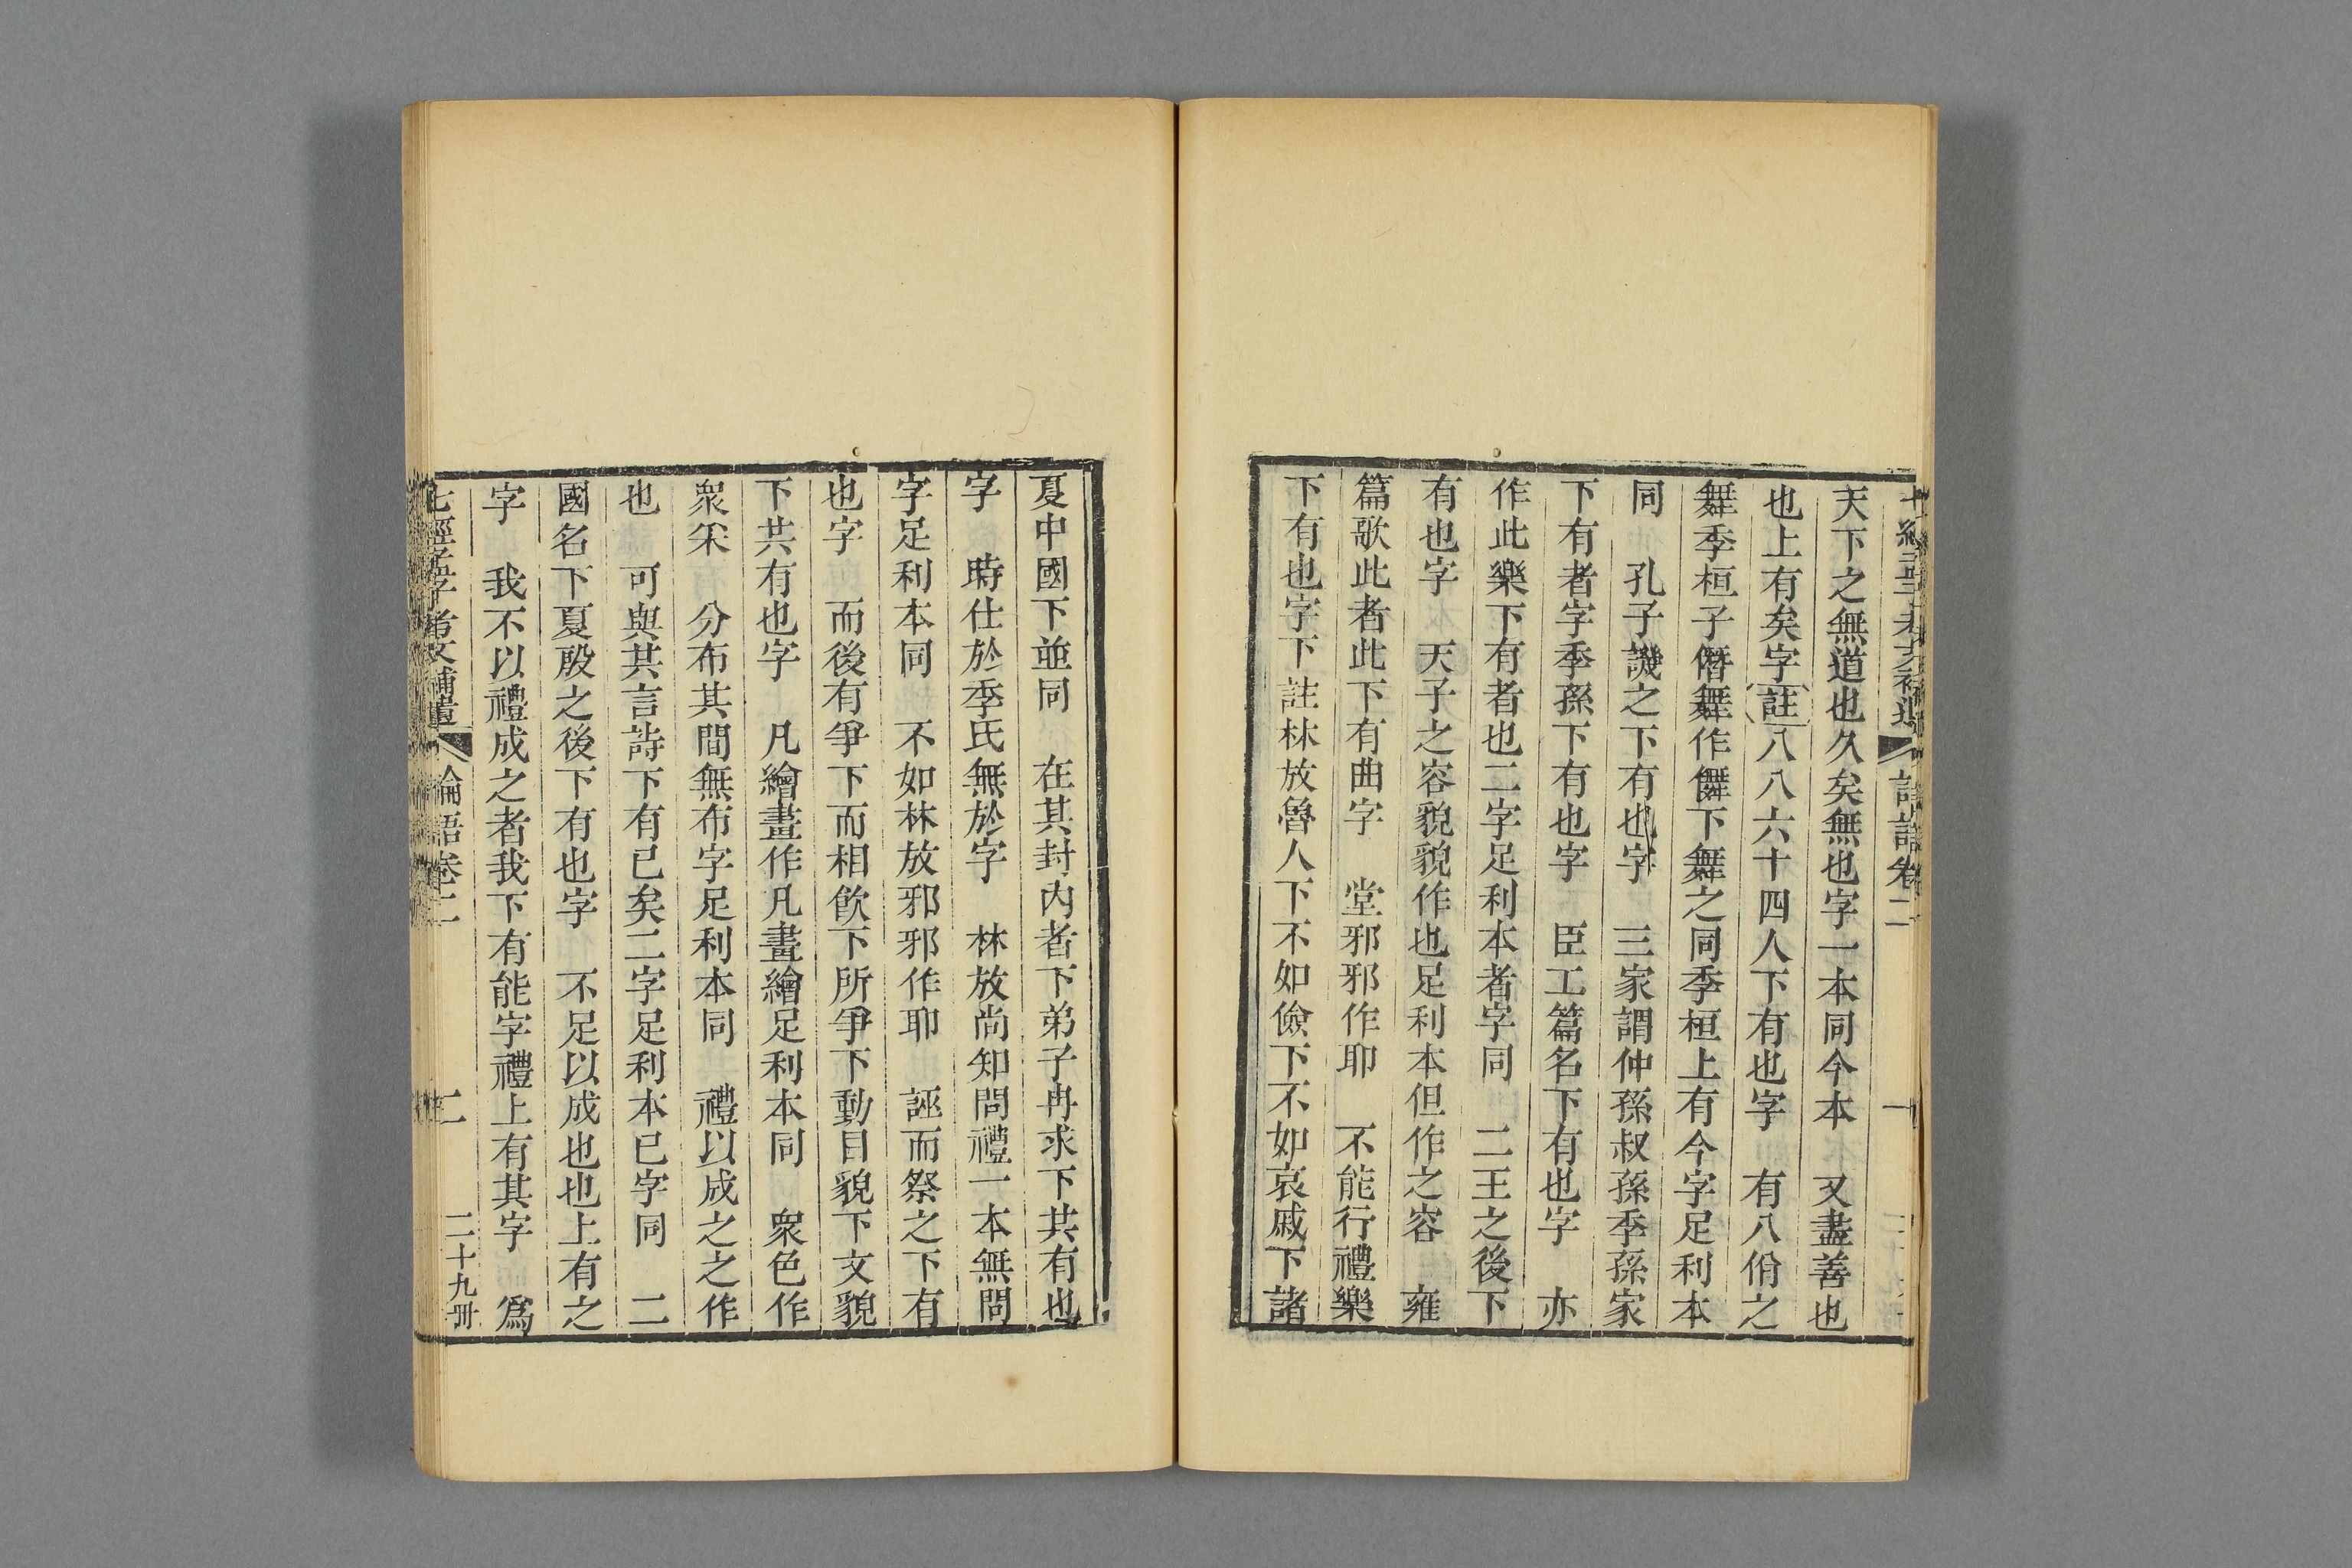 天下之無道也久矣無也字一本同今本　又盡善也
也上有矣字註八八六十四人下有也字　有八佾之
舞季桓子僭舞作儛下舞之同季桓上有今字足利本
同　孔子譏之下有也字　三家謂仲孫叔孫季孫家
下有者字季孫下有也字　臣工篇名下有也字　亦
作此樂下有者也二字足利本者字同　二王之後下
有也字　天子之容貌貌作也足利本但作之容　雍
篇歌此者此下有曲字　堂邪邪作耶　不能行禮樂
下有也字下註林放魯人下不如儉下不如哀戚下諸
夏中國下並同　在其封內者下弟子冉求下共有也
字　時仕於季氏無於字　林放尚知問禮一本無問
字足利本同　不如林放邪邪作耶　誣而祭之下有
也字　而後有爭下而相飲下所爭下動目貌下文貌
下共有也字　凡繪畫作凡畫繪足利本同　衆色作
衆采　分布其間無布字足利本同　禮以成之之作
也　可與共言詩下有已矣二字足利本已字同　二
國名下夏殷之後下有也字　不足以成也也上有之
字　我不以禮成之者我下有能字禮上有其字　爲
七經孟子考文補遺　論語卷二　二　二十九冊